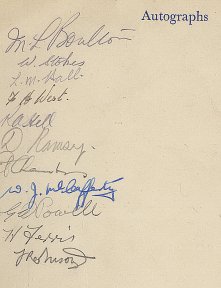 Autographs
M L Boulton
W. Stokes
L. M. Ball
West.
D Ramsey.
W. J. McCafferty
G E Powell
H Ferris
Robinson